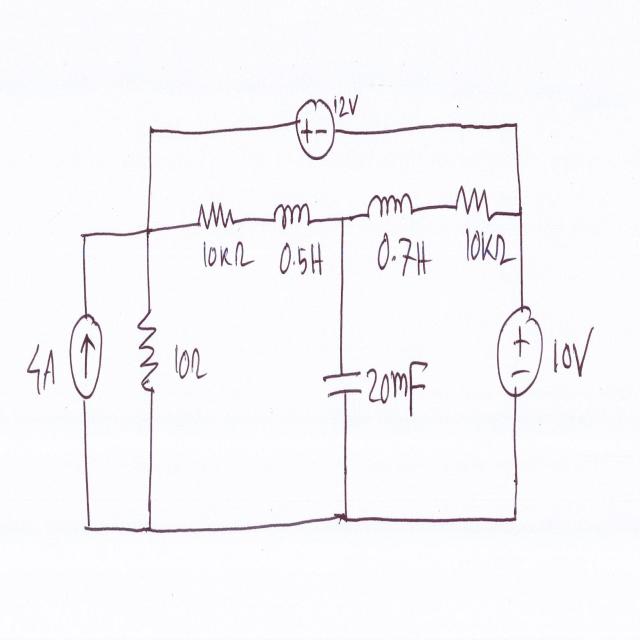 12V
+-
10KΩ
0.5H
0.7H
10KΩ
4A
10Ω
20mF
+
-
10V